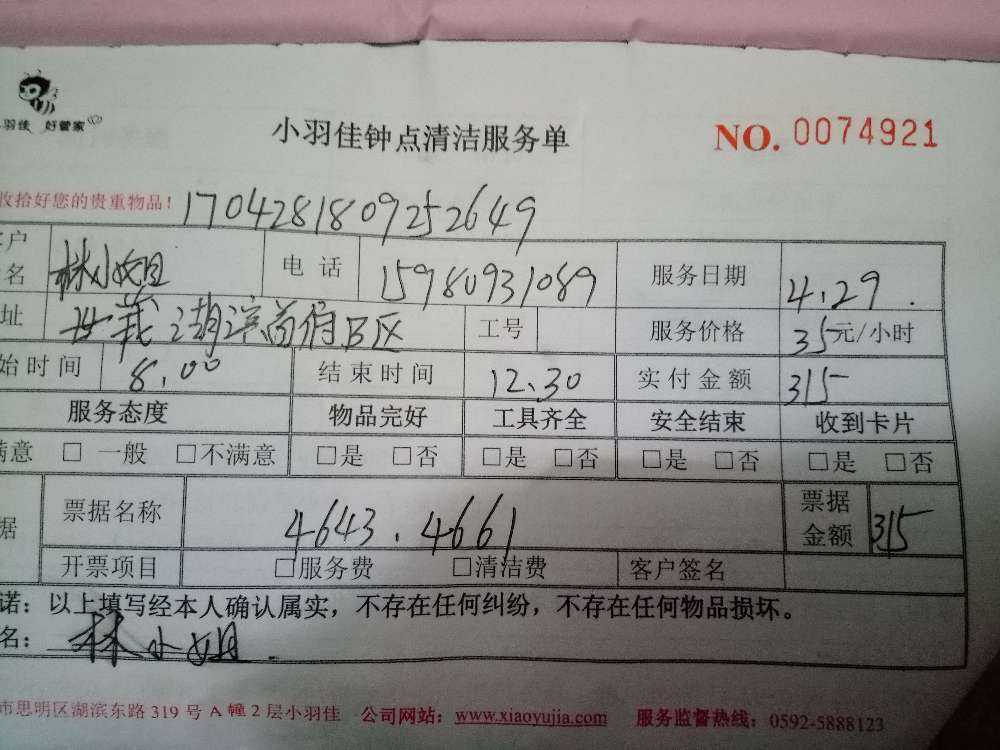 小羽佳 好管家
小羽佳钟点清洁服务单
NO. 0074921
收拾好您的贵重物品！ 1704281809252649
客户 名 林小姐 电 话 15980931089 服务日期 4.29.
址 世茂湖滨首府B区 工号 服务价格 35元/小时
始时间 8.00 结束时间 12.30 实付金额 315
服务态度 物品完好 工具齐全 安全结束 收到卡片
满意 □ 一般 □不满意 □是 □否 □是 □否 □是 □否 □是 □否
据 票据名称 4643.4661 票据金额 315
开票项目 □服务费 □清洁费 客户签名
诺：以上填写经本人确认属实，不存在任何纠纷，不存在任何物品损坏。
名：林小姐.
市思明区湖滨东路319号A幢2层小羽佳 公司网站：www.xiaoyujia.com 服务监督热线：0592-5888123